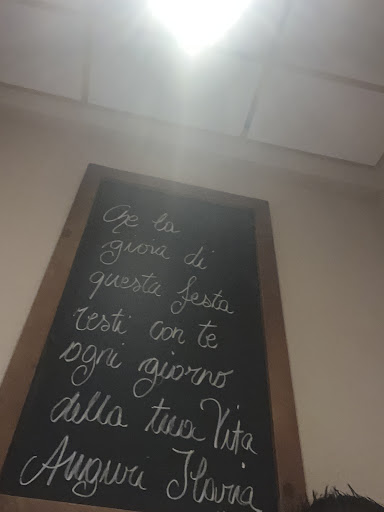 Che la
gioia di
questa festa
resti con te
ogni giorno
della tua Vita
Auguri Ilaria